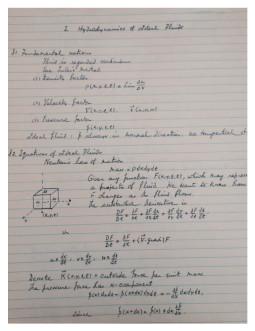 I. Hydrodynamics of Ideal Fluids
§1 Fundamental notions
Fluid is regarded continuum
Use Euler's method
(1) Density factor
ρ(x,y,z,t) = lim Δm/Δv
(2) Velocity factor
(3) Pressure factor
p(x,y,z,t)
Ideal fluid : p always in normal direction, no tangential
§2 Equations of Ideal Fluids
Newton's law of motion
mass = ρ dx dy dz
Given any function F(x,y,z,t), which may
a property of fluid. We want to know how
F changes as the fluid flows.
The substantial derivative is
DF/Dt = ∂F/∂t + ∂F/∂x dx/dt + ∂F/∂y dy/dt + ∂F/∂z dz/dt
or
DF/Dt = ∂F/∂t + (v⃗·grad)F
Denote K⃗(x,y,z,t) = outside force per unit mass
The pressure force has x-component
p(x)dydz - p(x+dx)dydz = -∂p/∂x dxdydz,
since p(x+dx) = p(x) + dx ∂p/∂x